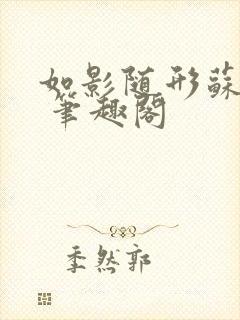 如影随形蘇
笔趣阁
季然郭